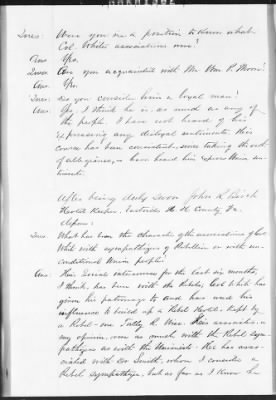 Ques: Were you in a position to know what
Col. White's associations were?
Ans Yes.
Ques Are you acquainted with Mr Wm P. Moore?
Ans. Yes.
Ques: Do you consider him a loyal man?
Ans: I think he is as much as any of
the people. I have not heard of his
expressing any disloyal sentiments. His
course has been consistent, since taking the oath
of allegiance, - have heard him express Union sen-
timents.
After being duly sworn John R. Birch
Hotel Keeper, Eastville N. H. County Va.
deposes:
Ques. What has been the character of the associations of Col.
White with sympathizers of Rebellion or with un-
conditional Union people?
Ans: His social intercourse for the last six months,
I think, has been with the Rebels; Col White has
given his patronage to and has used his
influence to build up a Rebel Hotel: kept by
a Rebel - one Tully R. Wise. His associates, in
my opinion, were as much with the Rebel sym-
pathizers as with the Unionists. He has asso-
ciated with Dr Smith, whom I consider a
Rebel sympathizer, but as far as I know he